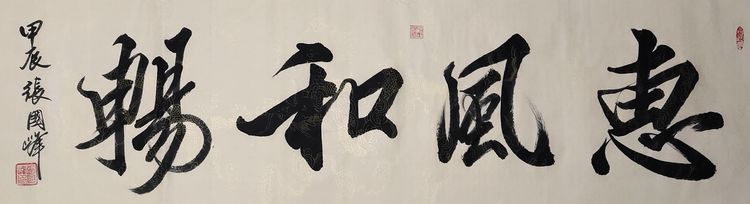 惠風和暢
甲辰張國峰